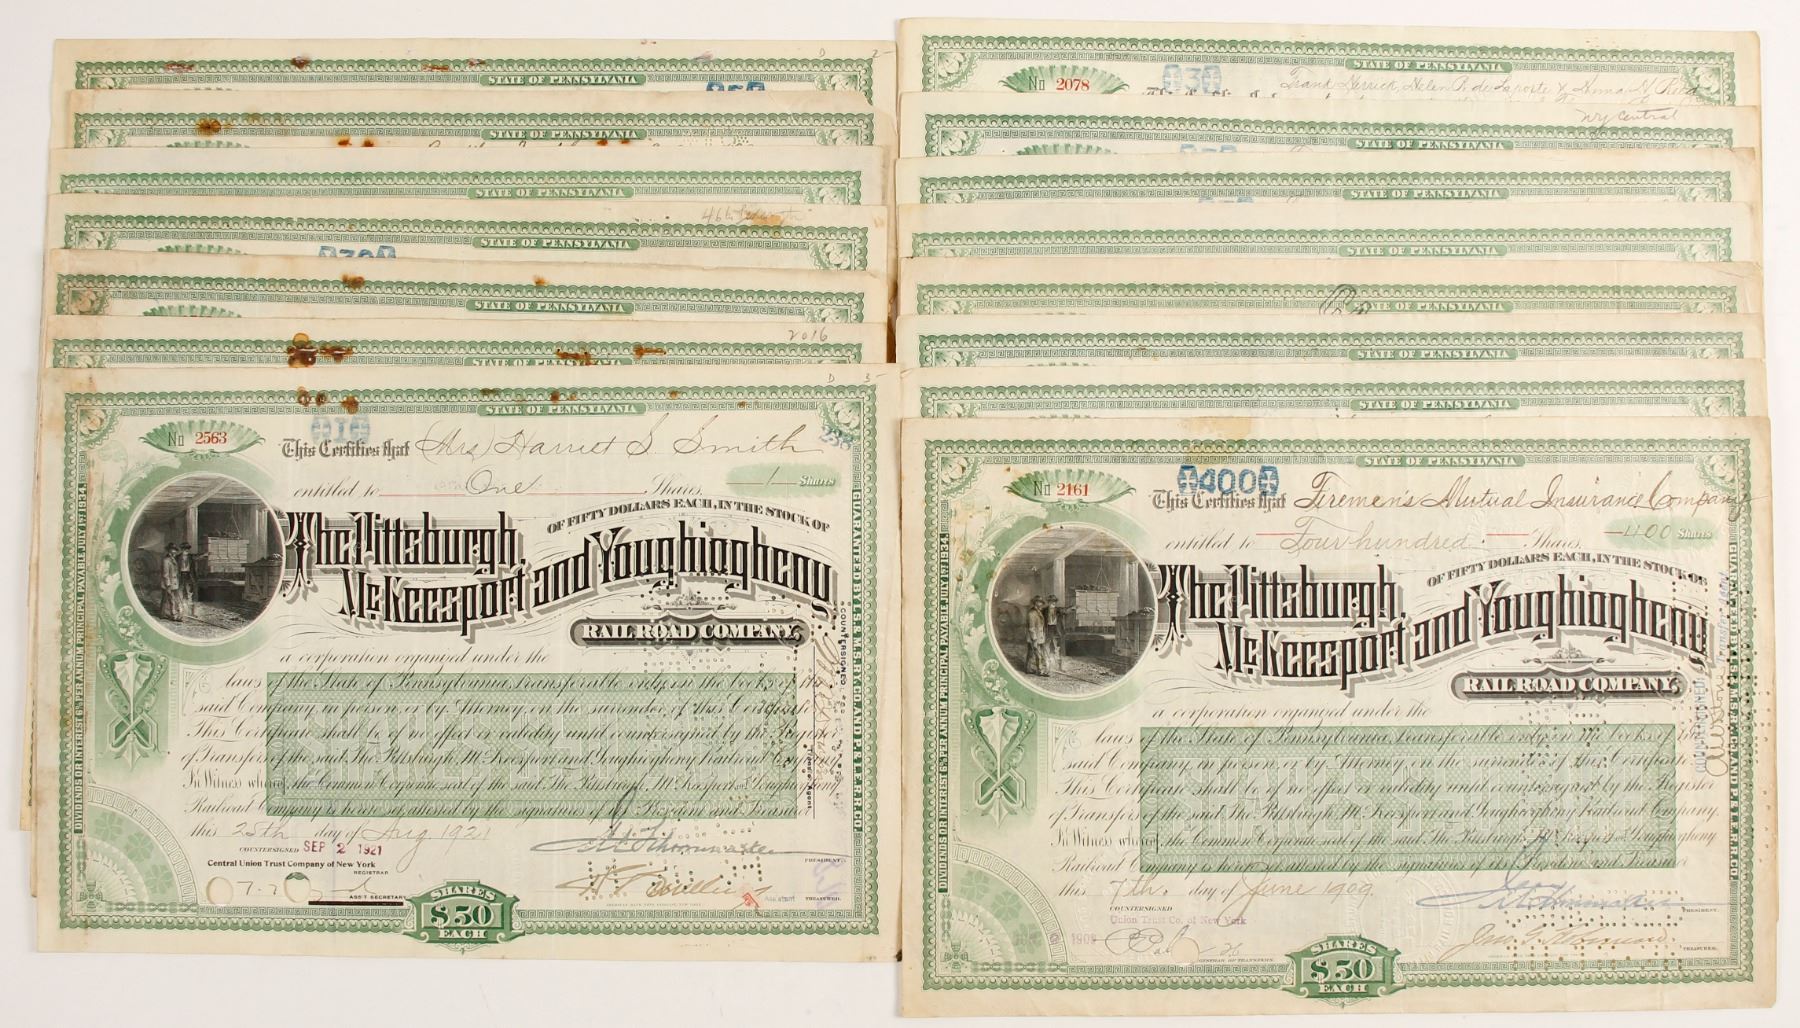 D 2-
STATE OF PENNSYLVANIA
STATE OF PENNSYLVANIA
STATE OF PENNSYLVANIA
STATE OF PENNSYLVANIA
STATE OF PENNSYLVANIA
2016
STATE OF PENNSYLVANIA
D 3-
STATE OF PENNSYLVANIA
No 2563
1
This Certifies that Mrs Harriet S Smith
238
entitled to One Shares 1 Shares
OF FIFTY DOLLARS EACH, IN THE STOCK OF
The Pittsburgh,
McKeesport and Youghiogheny
RAIL ROAD COMPANY,
a corporation organized under the
laws of the State of Pennsylvania, transferable only on the books of the
said Company, in person, or by Attorney, on the surrender of this Certificate
This Certificate shall be of no effect or validity until countersigned by the Register
of Transfers of the said The Pittsburgh, McKeesport and Youghiogheny Railroad Company.
In Witness whereof the Common Corporate seal of the said The Pittsburgh, McKeesport and Youghiogheny
Railroad Company is hereof attested by the signatures of its President and Treasurer
this 25th day of Aug 1921
COUNTERSIGNED SEP 2 1921
Central Union Trust Company of New York
REGISTRAR
ASS'T SECRETARY
PRESIDENT.
Assistant TREASURER.
SHARES
$50
EACH
DIVIDENDS OR INTEREST 6% PER ANNUM PRINCIPAL PAYABLE JULY 1ST 1934.
GUARANTEED BY L.S. & M.S. RY. CO. AND P. & L.E. R.R. CO.
COUNTERSIGNED
Transfer Agent
STATE OF PENNSYLVANIA
No 2078
3
Frank Herrick, Helen R. de Laporte & Anna H. Reed
NY Central
STATE OF PENNSYLVANIA
STATE OF PENNSYLVANIA
STATE OF PENNSYLVANIA
STATE OF PENNSYLVANIA
STATE OF PENNSYLVANIA
STATE OF PENNSYLVANIA
STATE OF PENNSYLVANIA
No 2161
400
This Certifies that Firemen's Mutual Insurance Company
entitled to Four hundred Shares, 400 Shares
OF FIFTY DOLLARS EACH, IN THE STOCK OF
The Pittsburgh,
McKeesport and Youghiogheny
RAIL ROAD COMPANY,
a corporation organized under the
laws of the State of Pennsylvania, transferable only on the books of the
said Company, in person, or by Attorney, on the surrender of this Certificate
This Certificate shall be of no effect or validity until countersigned by the Register
of Transfers of the said The Pittsburgh, McKeesport and Youghiogheny Railroad Company.
In Witness whereof the Common Corporate seal of the said The Pittsburgh, McKeesport and Youghiogheny
Railroad Company is hereof attested by the signatures of its President and Treasurer
this 7th day of June 1909
COUNTERSIGNED
Union Trust Co. of New York
1909
REGISTRAR OF TRANSFERS.
PRESIDENT.
TREASURER.
SHARES
$50
EACH
DIVIDENDS OR INTEREST 6% PER ANNUM PRINCIPAL PAYABLE JULY 1ST 1934.
GUARANTEED BY L.S. & M.S. RY. CO. AND P. & L.E. R.R. CO.
COUNTERSIGNED
Transfer Agent